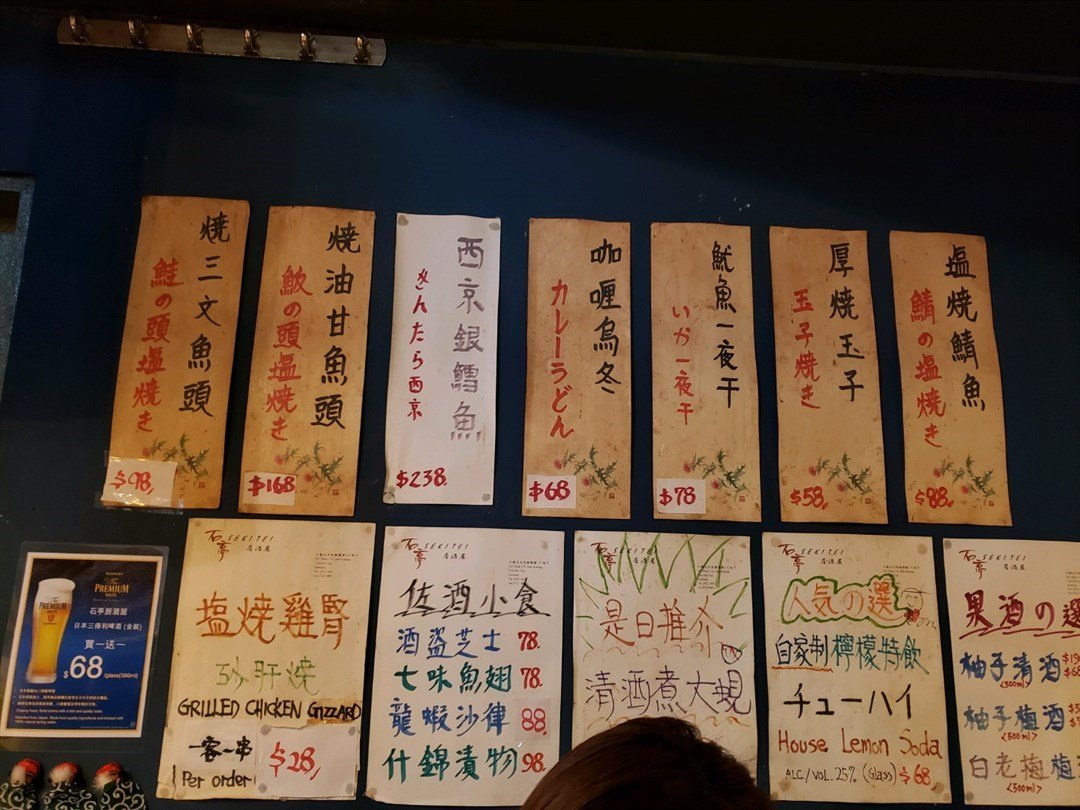 焼三文魚頭
鮭の頭塩焼き
$98,
焼油甘魚頭
鰤の頭塩焼き
$168
西京銀鱈魚
ぎんたら西京
$238.
咖喱烏冬
カレーうどん
$68
魷魚一夜干
いか一夜干
$78
厚焼玉子
玉子焼き
$58.
塩焼鯖魚
鯖の塩焼き
$88.
PREMIUM
石亭居酒屋
日本三得利啤酒 (金裝)
買一送一
$68/glass(380ml)
石亭 SEKITEI
居酒屋
塩焼雞腎
砂肝焼
GRILLED CHICKEN GIZZARD
一客一串
Per order
$28,
石亭 SEKITEI
居酒屋
佐酒小食
酒盗芝士 78.
七味魚翅 78.
龍蝦沙律 88.
什錦漬物 98.
石亭 SEKITEI
居酒屋
是日推介
清酒煮大蜆
石亭 SEKITEI
居酒屋
人気の選
自家制檸檬特飲
チューハイ
House Lemon Soda
ALC./VOL. 25% (Glass) $68.
石亭 SEKITEI
果酒の選
柚子清酒
<300ml>
柚子梅酒
<500ml>
白老梅
<500ml>